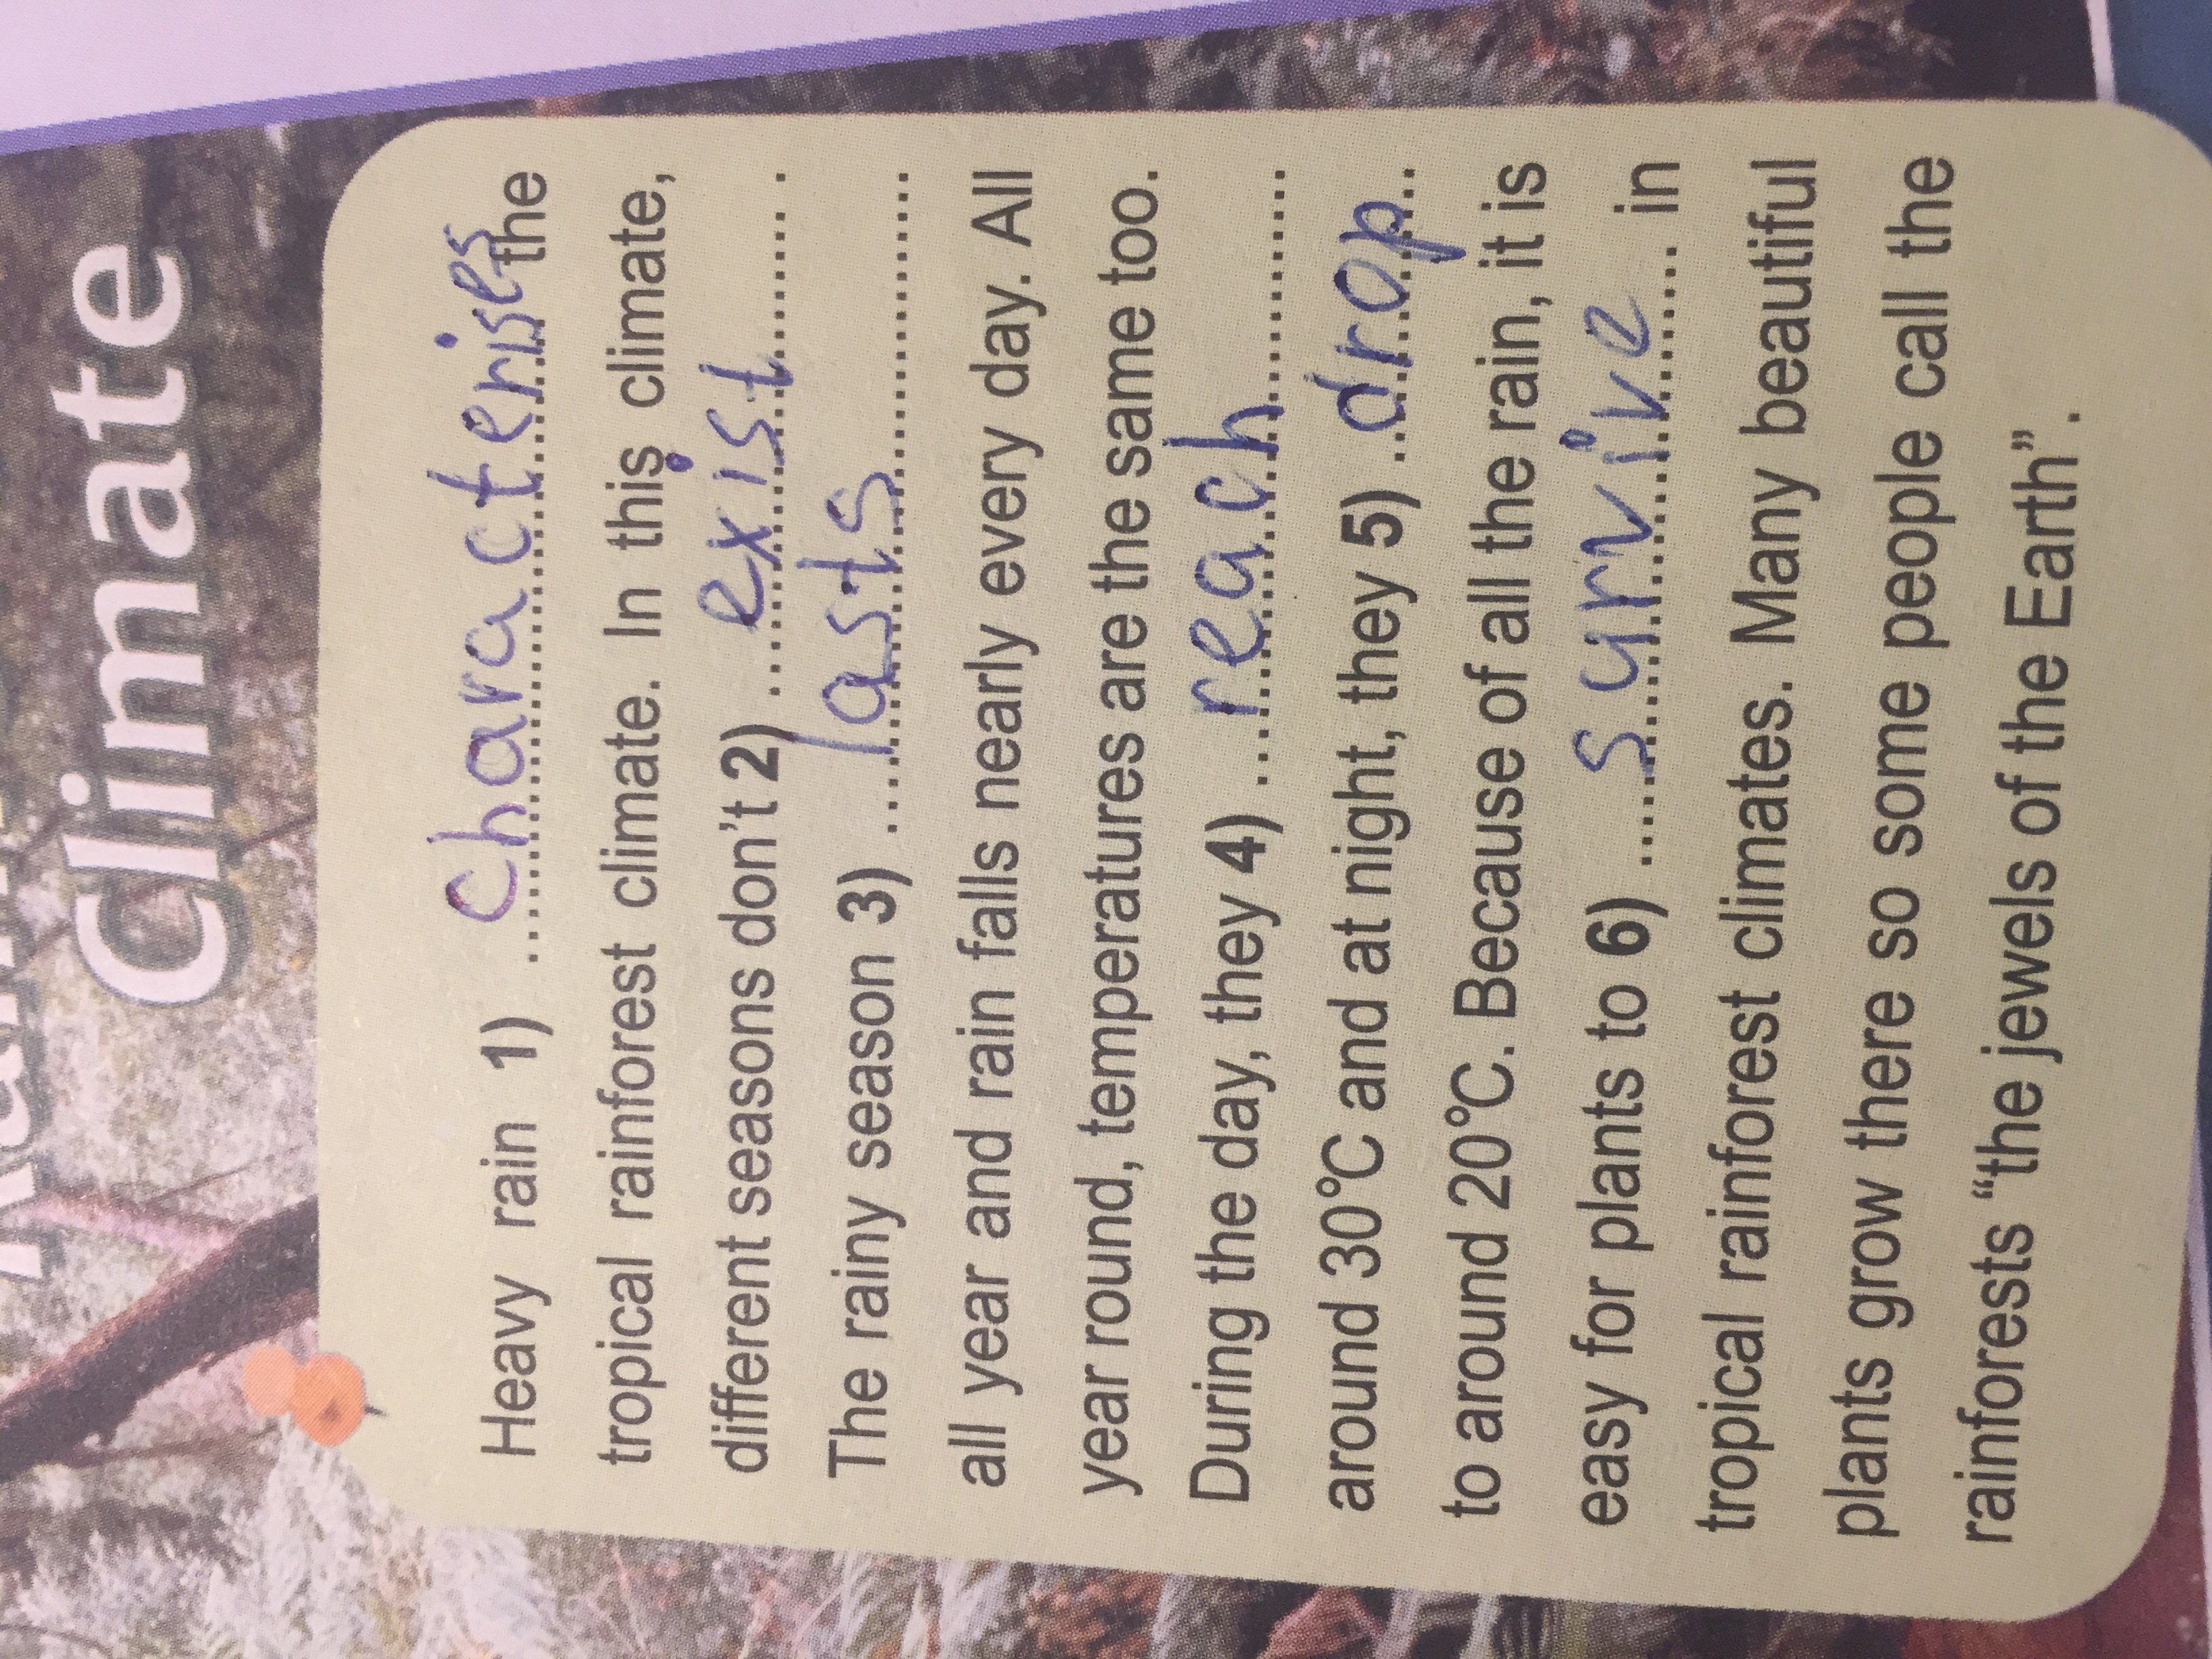 Climate
Heavy rain 1) ....characterises the
tropical rainforest climate. In this climate,
different seasons don't 2) ....exist.... .
The rainy season 3) ....lasts....
all year and rain falls nearly every day. All
year round, temperatures are the same too.
During the day, they 4) ....reach....
around 30°C and at night, they 5) ..drop..
to around 20°C. Because of all the rain, it is
easy for plants to 6) ....survive.... in
tropical rainforest climates. Many beautiful
plants grow there so some people call the
rainforests “the jewels of the Earth”.